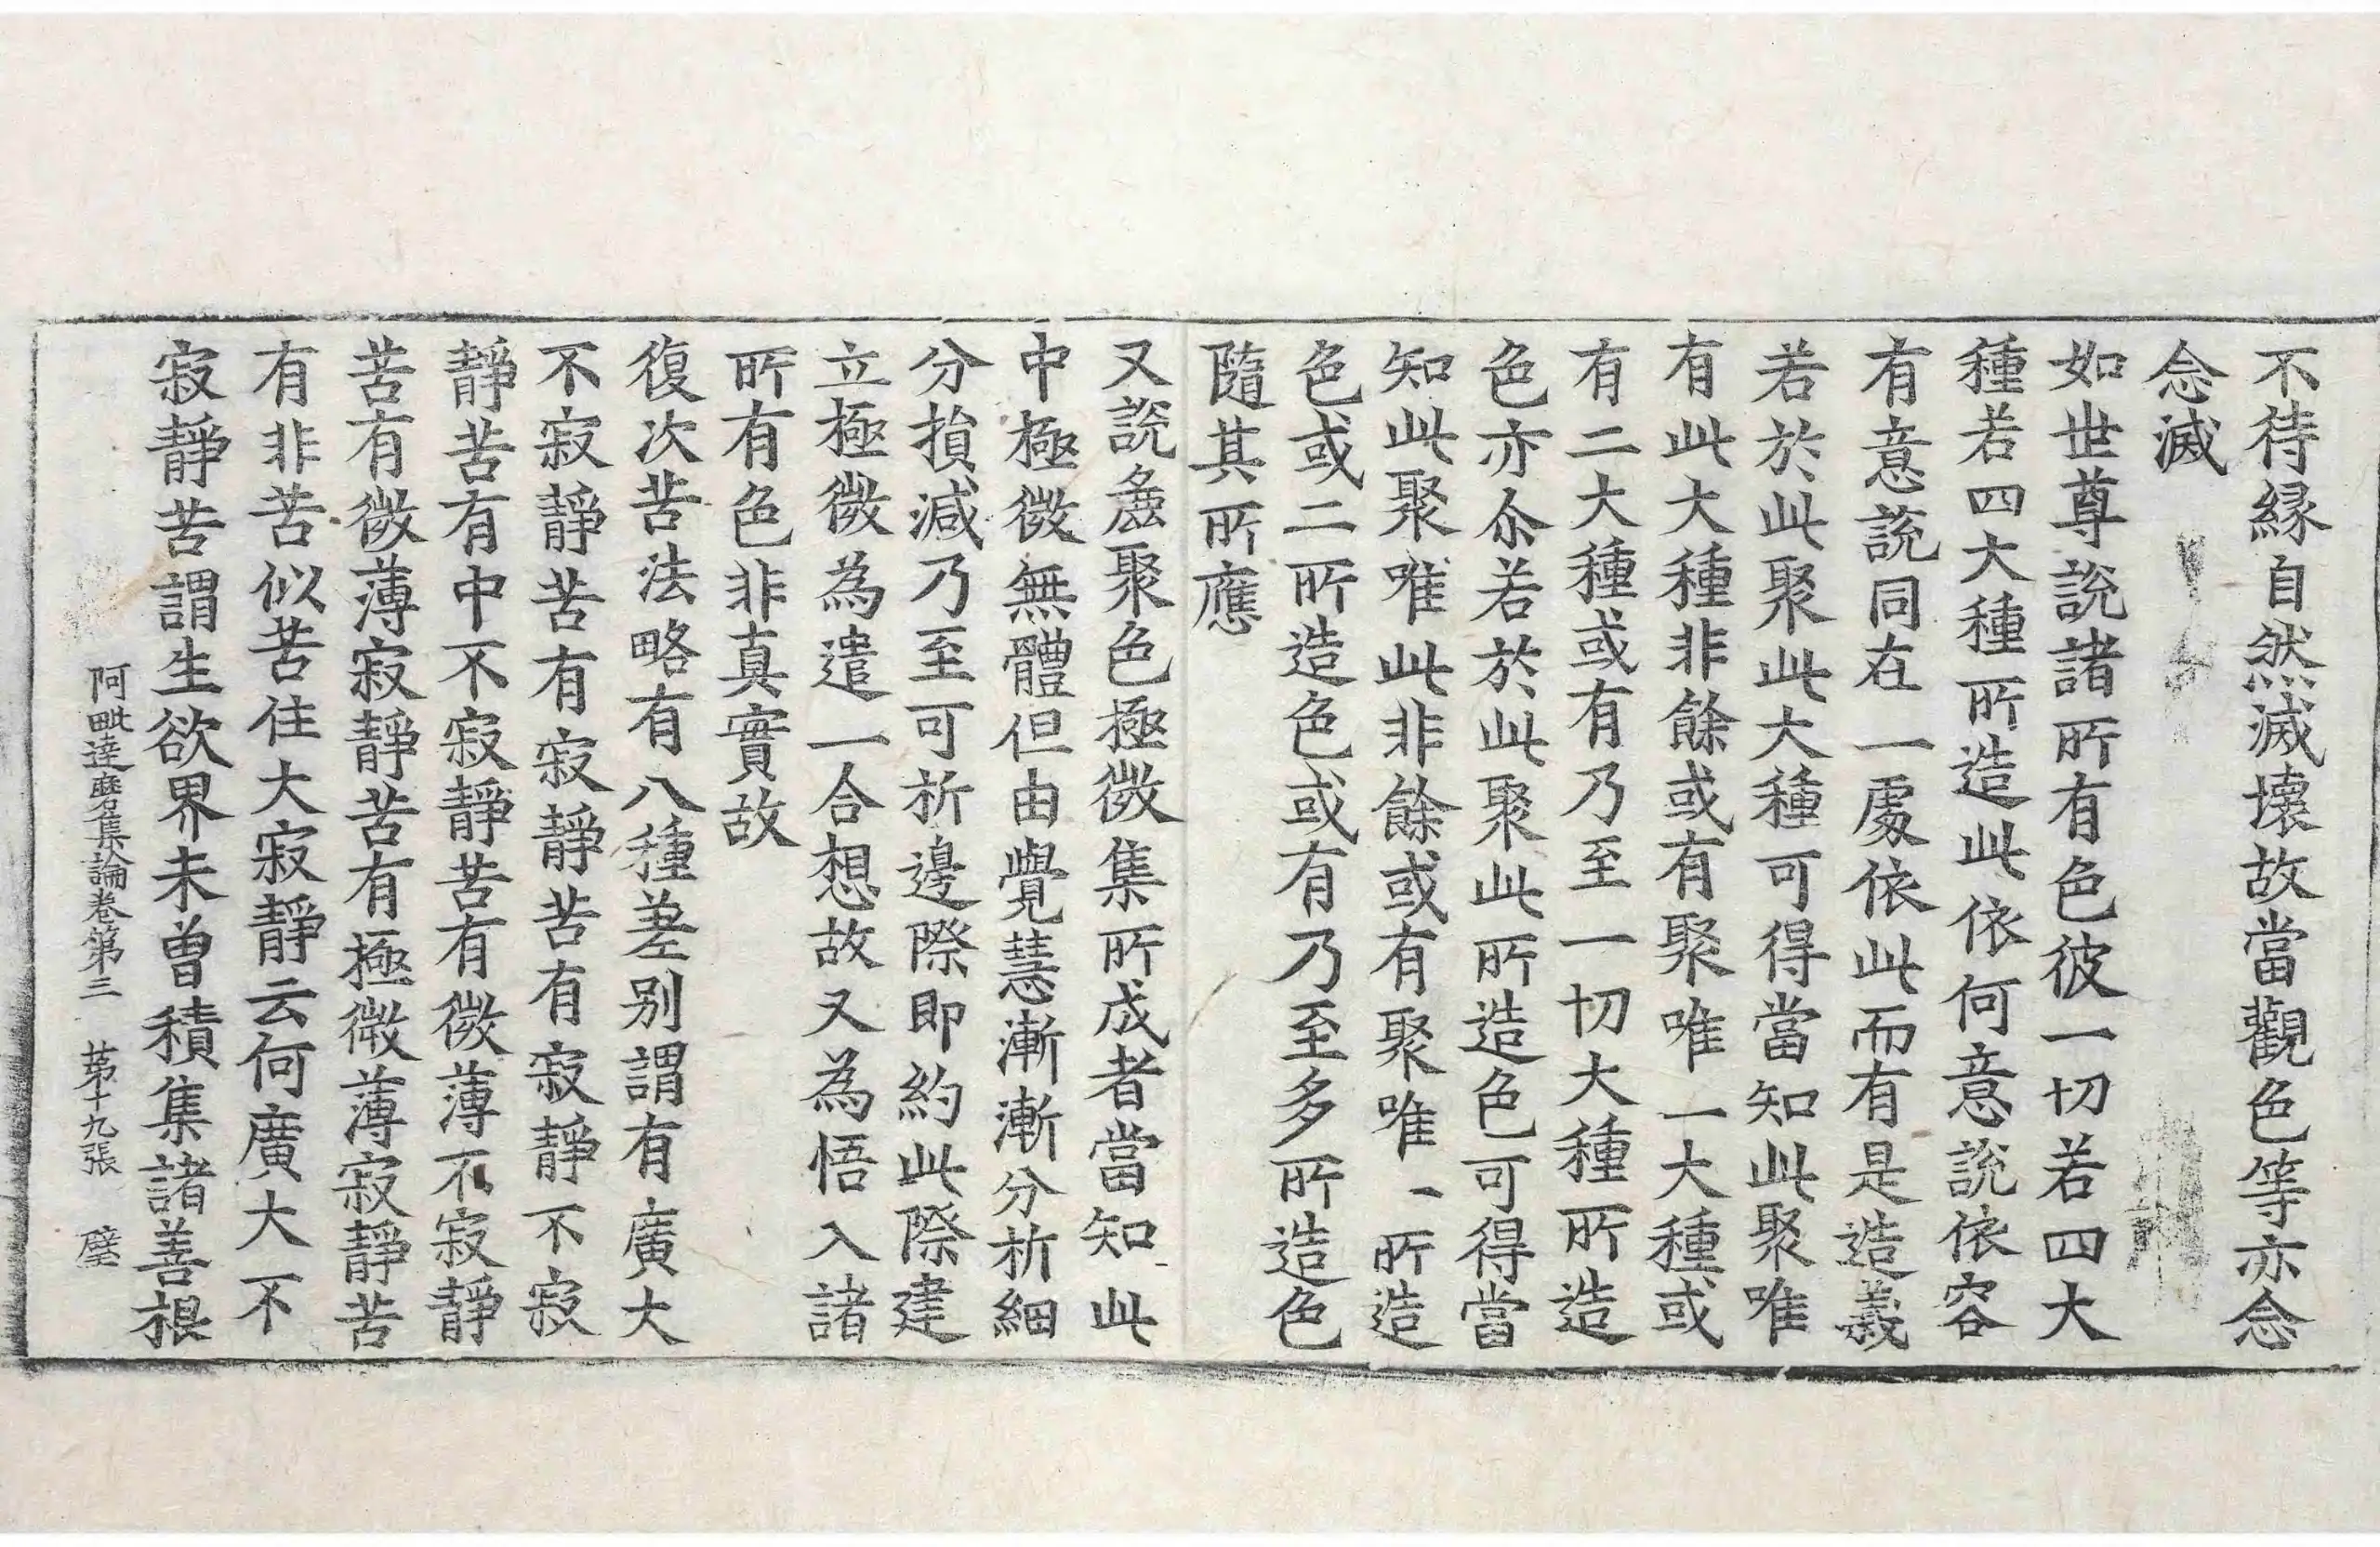 不待縁自然滅壞故當觀色等亦念
念滅
如世尊說諸所有色彼一切若四大
種若四大種所造此依何意說依容
有意說同在一處依此而有是造義
若於此聚此大種可得當知此聚唯
有此大種非餘或有聚唯一大種或
有二大種或有乃至一切大種所造
色亦尒若於此聚此所造色可得當
知此聚唯此非餘或有聚唯一所造
色或二所造色或有乃至多所造色
隨其所應
又說麁聚色極微集所成者當知此
中極微無體但由覺慧漸漸分析細
分損減乃至可析邊際即約此際建
立極微為遣一合想故又為悟入諸
所有色非真實故
復次苦法略有八種差別謂有廣大
不寂靜苦有寂靜苦有寂靜不寂
靜苦有中不寂靜苦有微薄不寂靜
苦有微薄寂靜苦有極微薄寂靜苦
有非苦似苦住大寂靜云何廣大不
寂靜苦謂生欲界未曾積集諸善根
阿毗達磨集論卷第三 苐十九張 璧